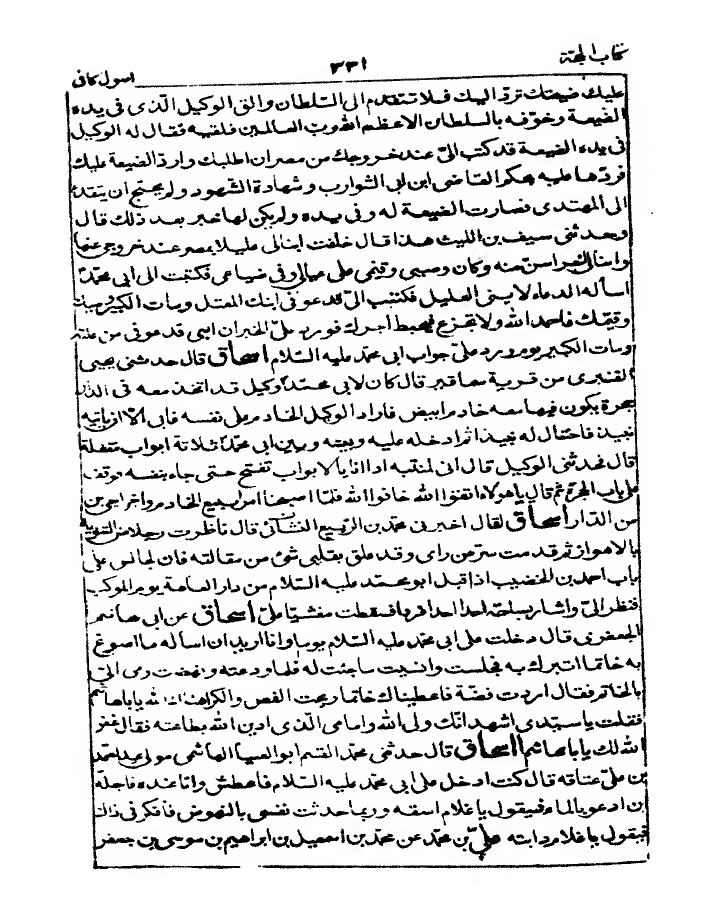 كتاب الحجة
٣٣١
اصول كافى
عليك ضيعتك ترد اليك فلا تتقدم الى السلطان والق الوكيل الّذى فى يده
الضيعة وخوّفه بالسلطان الاعظم الله رب العالمين فلقيه فقال له الوكيل
فى يده الضيعة قد كتب الىّ عند خروجك من مصر ان اطلبك وارد الضيعة عليك
فردّها عليه بحكم القاضى ابن ابى الشوارب وشهادة الشهود ولم يحتج ان يتقدم
الى المهتدى فصارت الضيعة له وفى يده ولم يكن لها خبر بعد ذلك قال
وحدثنى سيف بن الليث هذا قال خلفت ابنا لى عليلا بمصر عند خروجى عنها
وابنا لى آخر اسن منه وكان وصيى وقيمى على عيالى وفى ضياعى فكتبت الى ابى محمدؑ
اسأله الدعاء لابنى العليل فكتب الىّ قد عوفى ابنك المعتل ومات الكبير وصيك
وقيمك فاحمد الله ولا تجزع فيحبط اجرك فورد علىّ الخبر ان ابنى قد عوفى من علته
ومات الكبير يوم ورد علىّ جواب ابى محمد عليه السلام اسحاق قال حدثنى يحيى
القنبرى من قرية سما قير قال كان لابى محمدؑ وكيل قد اتخذ معه فى الدار
حجرة يكون فيها معه خادم ابيض فاراد الوكيل الخادم على نفسه فابى الا ان ياتيه
نبيذ فاحتال له نبيذ اثم ادخله عليه وبينه وبين ابى محمدؑ ثلاثة ابواب مغلقة
قال فحدثنى الوكيل قال انى لمنتبه اذ انا بالابواب تفتح حتى جاء بنفسه فوقف
على باب الحجرة ثم قال يا هؤلاء اتقوا الله خافوا الله فلما اصبحنا امر ببيع الخادم واخراجى من
من الدار اسحاق قال اخبرنى محمد بن الربيع النشائى قال ناظرت رجلا من الثنوية
بالاهواز ثم قدمت سرّ من راى وقد علق بقلبى شئ من مقالته فانى لجالس على
باب احمد بن الخضيب اذ اقبل ابو محمد عليه السلام من دار العامة يوم الموكب
فنظر الىّ واشار بسباحته احدا احدا فردا فسقطت مغشيا علىّ اسحاق عن ابى هاشم
الجعفرى قال دخلت على ابى محمد عليه السلام يوما وانا اريد ان اسأله ما اصوغ
به خاتما اتبرك به فجلست وانسيت ما جئت له فلما ودعته ونهضت رمى الىّ
بالخاتم فقال اردت فضّة فاعطيناك خاتما ربحت الفص والكراهنّاك الله يا باهاشم
فقلت يا سيّدى اشهد انّك ولى الله وامامى الّذى ادين الله بطاعته فقال غفر
الله لك يا باهاشم اسحاق قال حدثنى محمد القسم ابو العينا الهاشمى مولى عبد الصمد
بن علىّ عتاقه قال كنت ادخل على ابى محمد عليه السلام فاعطش وانا عنده فاجلّه
ان ادعو بالماء فيقول يا غلام اسقه وربما حدثت نفسى بالنهوض فافكر فى ذلك
فيقول يا غلام دابته علىّ بن محمد عن محمد بن اسمعيل بن ابراهيم بن موسى بن جعفر